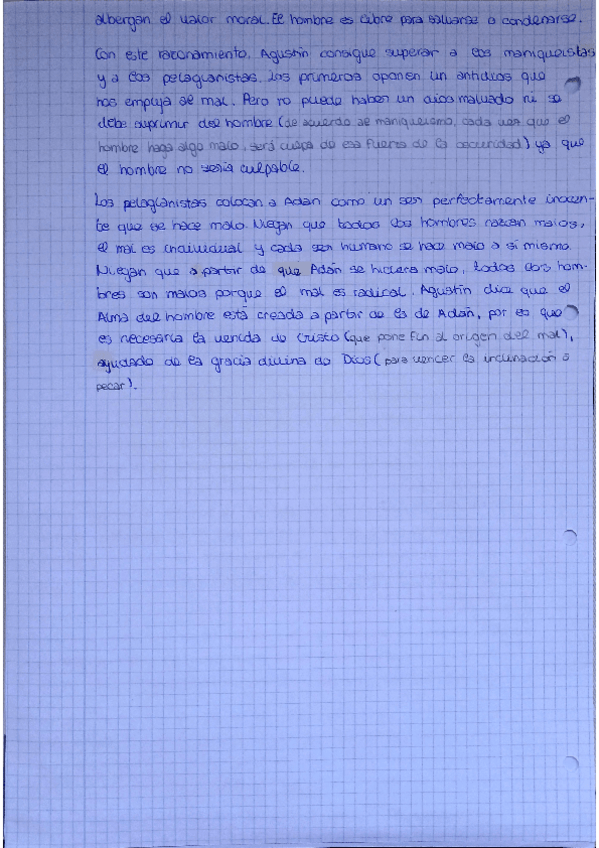 albergan el valor moral. El hombre es libre para salvarse o condenarse.
Con este razonamiento, Agustín consigue superar a los maniqueistas
y a los pelagianistas. Los primeros oponen un antidios que
nos empuja al mal. Pero no puede haber un dios malvado ni se
debe suprimir del hombre (de acuerdo al maniqueismo, cada vez que el
hombre haga algo malo, será culpa de esa fuerza de la oscuridad) ya que
el hombre no sería culpable.
Los pelagianistas colocan a Adán como un ser perfectamente inocen-
te que se hace malo. Niegan que todos los hombres nazcan malos,
el mal es individual y cada ser humano se hace malo a sí mismo.
Niegan que a partir de que Adán se hiciera malo, todos los hom-
bres son malos porque el mal es radical. Agustín dice que el
Alma del hombre está creada a partir de la de Adán, por eso que
es necesaria la venida de Cristo (que pone fin al origen del mal),
ayudado de la gracia divina de Dios (para vencer la inclinación a
pecar).